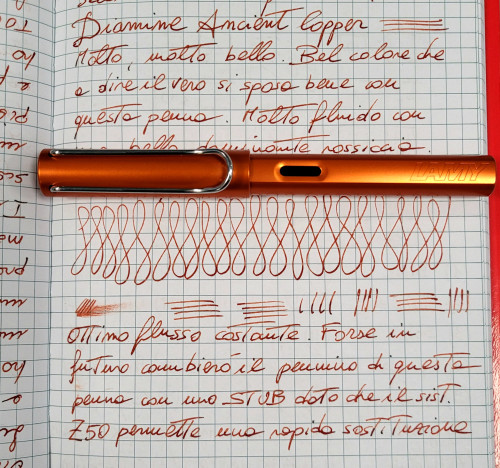 Diamine Ancient Copper
Molto, molto bello. Bel colore che
a dire il vero si sposa bene con
questa penna. Molto fluido con
una bella dominante rossiccia.
LAMY
Ottimo flusso costante. Forse in
futuro cambierò il pennino di questa
penna con uno STUB dato che il sist.
Z50 permette una rapida sostituzione